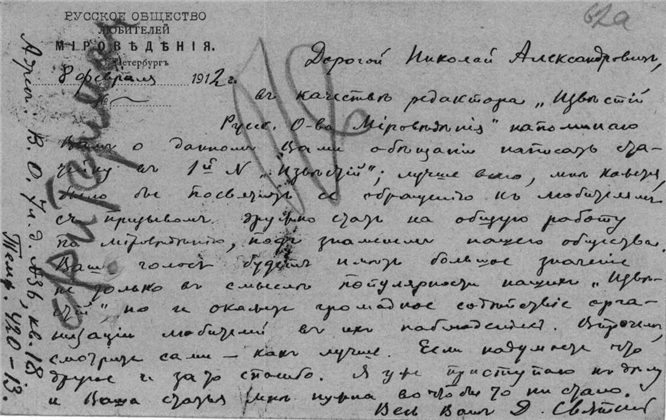 РУССКОЕ ОБЩЕСТВО
ЛЮБИТЕЛЕЙ
МІРОВѢДѢНІЯ.
Петербургъ
8 февраля 1912 г.
№ —
62а
Дорогой Николай Александровичъ,
въ качествѣ редактора „Извѣстій
Русск. О-ва Міровѣдѣнія" напоминаю
Вамъ о данномъ Вами обѣщаніи написать ста-
тейку въ 1ый № „Извѣстій"; лучше всего, мнѣ кажется,
было бы посвятить ее обращенію къ любителямъ
съ призывомъ дружно стать на общую работу
по міровѣдѣнію, подъ знаменемъ нашего общества.
Вашъ голосъ будетъ имѣть большое значеніе
не только въ смыслѣ популярности нашихъ „Извѣ-
стій" но и окажетъ громадное содѣйствіе орга-
низаціи любителей въ ихъ наблюденіяхъ. Впрочемъ,
смотрите сами — какъ лучше. Если надумаете что
другое и за то спасибо. Я уже приступаю къ дѣлу
и Ваша статья мнѣ нужна во что бы то ни стало.
Весь Вашъ Д Святскій
Адрес. В. О. 7 л. д. №36, кв. 18
Телеф. 420-13.